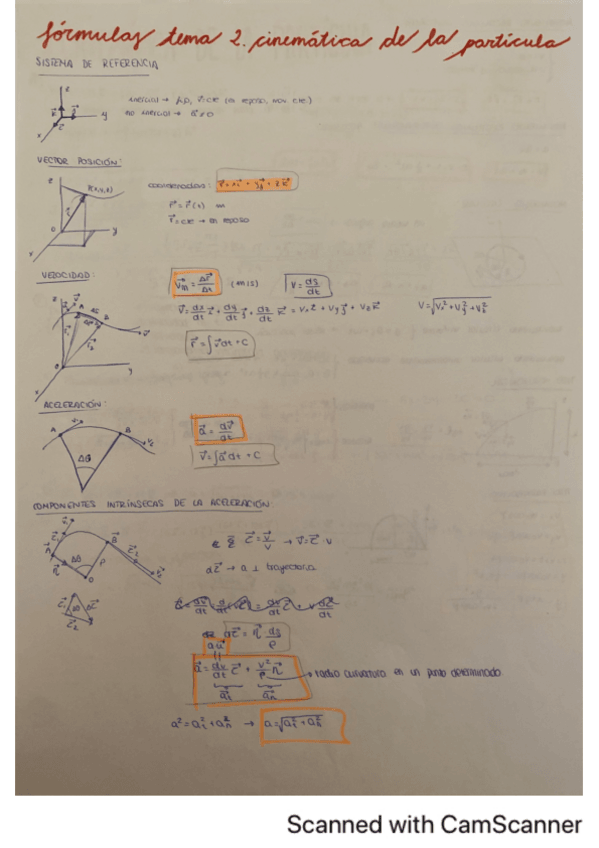 fórmulas tema 2. cinemática de la partícula
SISTEMA DE REFERENCIA
inercial →
no inercial → a⃗≠0
VECTOR POSICIÓN:
coordenadas: r⃗ = xi⃗ + yj⃗ + zk⃗
P(x,y,z)
r⃗ = r⃗(t) m
r⃗ = cte → en reposo
VELOCIDAD:
v⃗m = Δr⃗/Δt (m/s) v = ds/dt
v⃗ = dx/dt i⃗ + dy/dt j⃗ + dz/dt k⃗ = vx i⃗ + vy j⃗ + vz k⃗ v = √vx² + vy² + vz²
r⃗ = ∫v⃗ dt + C
ACELERACIÓN:
a⃗ = dv⃗/dt
v⃗ = ∫a⃗ dt + C
A B Δθ
COMPONENTES INTRÍNSECAS DE LA ACELERACIÓN:
τ⃗ = v⃗/v → v⃗ = τ⃗ · v
dτ⃗ → a s trayectoria
dτ⃗ = η⃗ ds/ρ
a⃗ = dv/dt τ⃗ + v²/ρ η⃗ → radio curvatura en un punto determinado
a⃗t a⃗n
a² = at² + an² → a = √at² + an²
Scanned with CamScanner